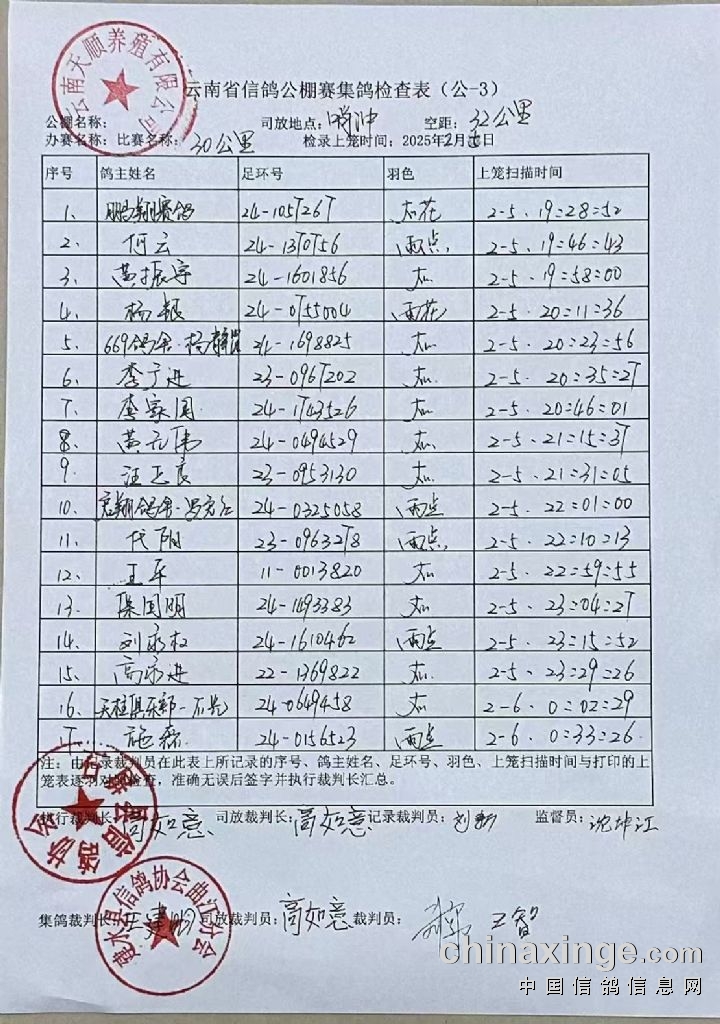 云南天顺养殖有限公司
云南省信鸽公棚赛集鸽检查表（公-3）
公棚名称： 司放地点： 空距：32公里
办赛名称：比赛名称：30公里 检录上笼时间：2025年2月5日
序号 鸽主姓名 足环号 羽色 上笼扫描时间
1、 鹏翔赛鸽 24-1057267 灰花 2-5、19:28:52
2、 何云 24-1370756 雨点 2-5、19:46:43
3、 黄振宇 24-1601856 灰 2-5、19:58:00
4、 杨银 24-0755004 雨花 2-5、20:11:36
5、 669鸽舍·杨 24-1698825 灰 2-5、20:23:56
6、 李于进 23-0967202 灰 2-5、20:35:27
7、 李家国 24-1743526 灰 2-5、20:46:01
8、 黄元伟 24-0494529 灰 2-5、21:15:37
9、 汪正良 23-0953130 灰 2-5、21:31:05
10、 翔鸽舍-冯 24-0325058 雨点 2-5、22:01:00
11、 代阳 23-0963278 雨点 2-5、22:10:13
12、 王平 11-0013820 灰 2-5、22:59:55
13、 国明 24-1493383 灰 2-5、23:04:27
14、 刘永权 24-1610462 雨点 2-5、23:15:52
15、 高永进 22-1369822 灰 2-5、23:29:26
16、 俱乐部-石 24-0649458 灰 2-6、0:02:29
17、 施磊 24-0156523 雨点 2-6、0:33:26
注：由记录裁判员在此表上所记录的序号、鸽主姓名、足环号、羽色、上笼扫描时间与打印的上
笼表逐羽对照检查，准确无误后签字并执行裁判长汇总。
执行裁判长：高如意 司放裁判长：高如意 记录裁判员：刘 监督员：沈坤江
信鸽协会
集鸽裁判长：王建明 司放裁判员：高如意 裁判员： 王智
建水县信鸽协会曲江分会
chinaxinge.com
中国信鸽信息网